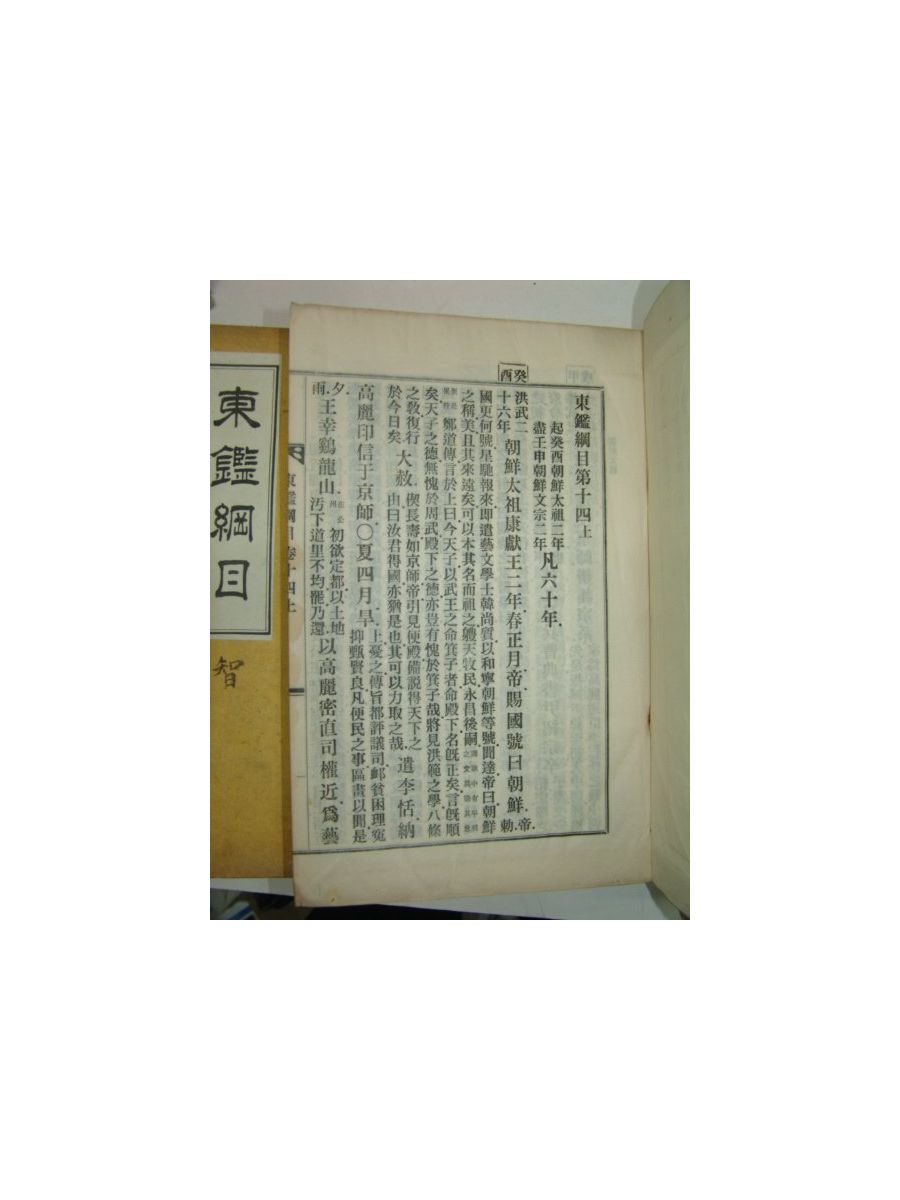 東鑑綱目第十四上
起癸酉朝鮮太祖二年
盡壬申朝鮮文宗二年
凡六十年
癸酉
洪武二
十六年
朝鮮太祖康獻王二年春正月帝賜國號曰朝鮮
帝
勅
國更何號星馳報來即遣藝文學士韓尚質以和寧朝鮮等號聞達帝曰朝鮮
之稱美且其來遠矣可以本其名而祖之軆天牧民永昌後嗣
鄭道傳言於上曰今天子以武王之命箕子者命殿下名旣正矣言旣順
矣天子之德無愧於周武殿下之德亦豈有愧於箕子哉將見洪範之學八條
之敎復行
於今日矣
大赦
偰長壽如京師帝引見便殿備說得天下之
由曰汝君得國亦猶是也其可以力取之哉
遣李恬納
高麗印信于京師〇夏四月旱
上憂之傳旨都評議司卹貧困理寃
抑甄賢良凡便民之事區畫以聞是
夕
雨
王幸鷄龍山
在公
州
初欲定都以土地
汚下道里不均罷乃還
以高麗密直司權近爲藝
東鑑綱目卷十四上
東鑑綱目
智